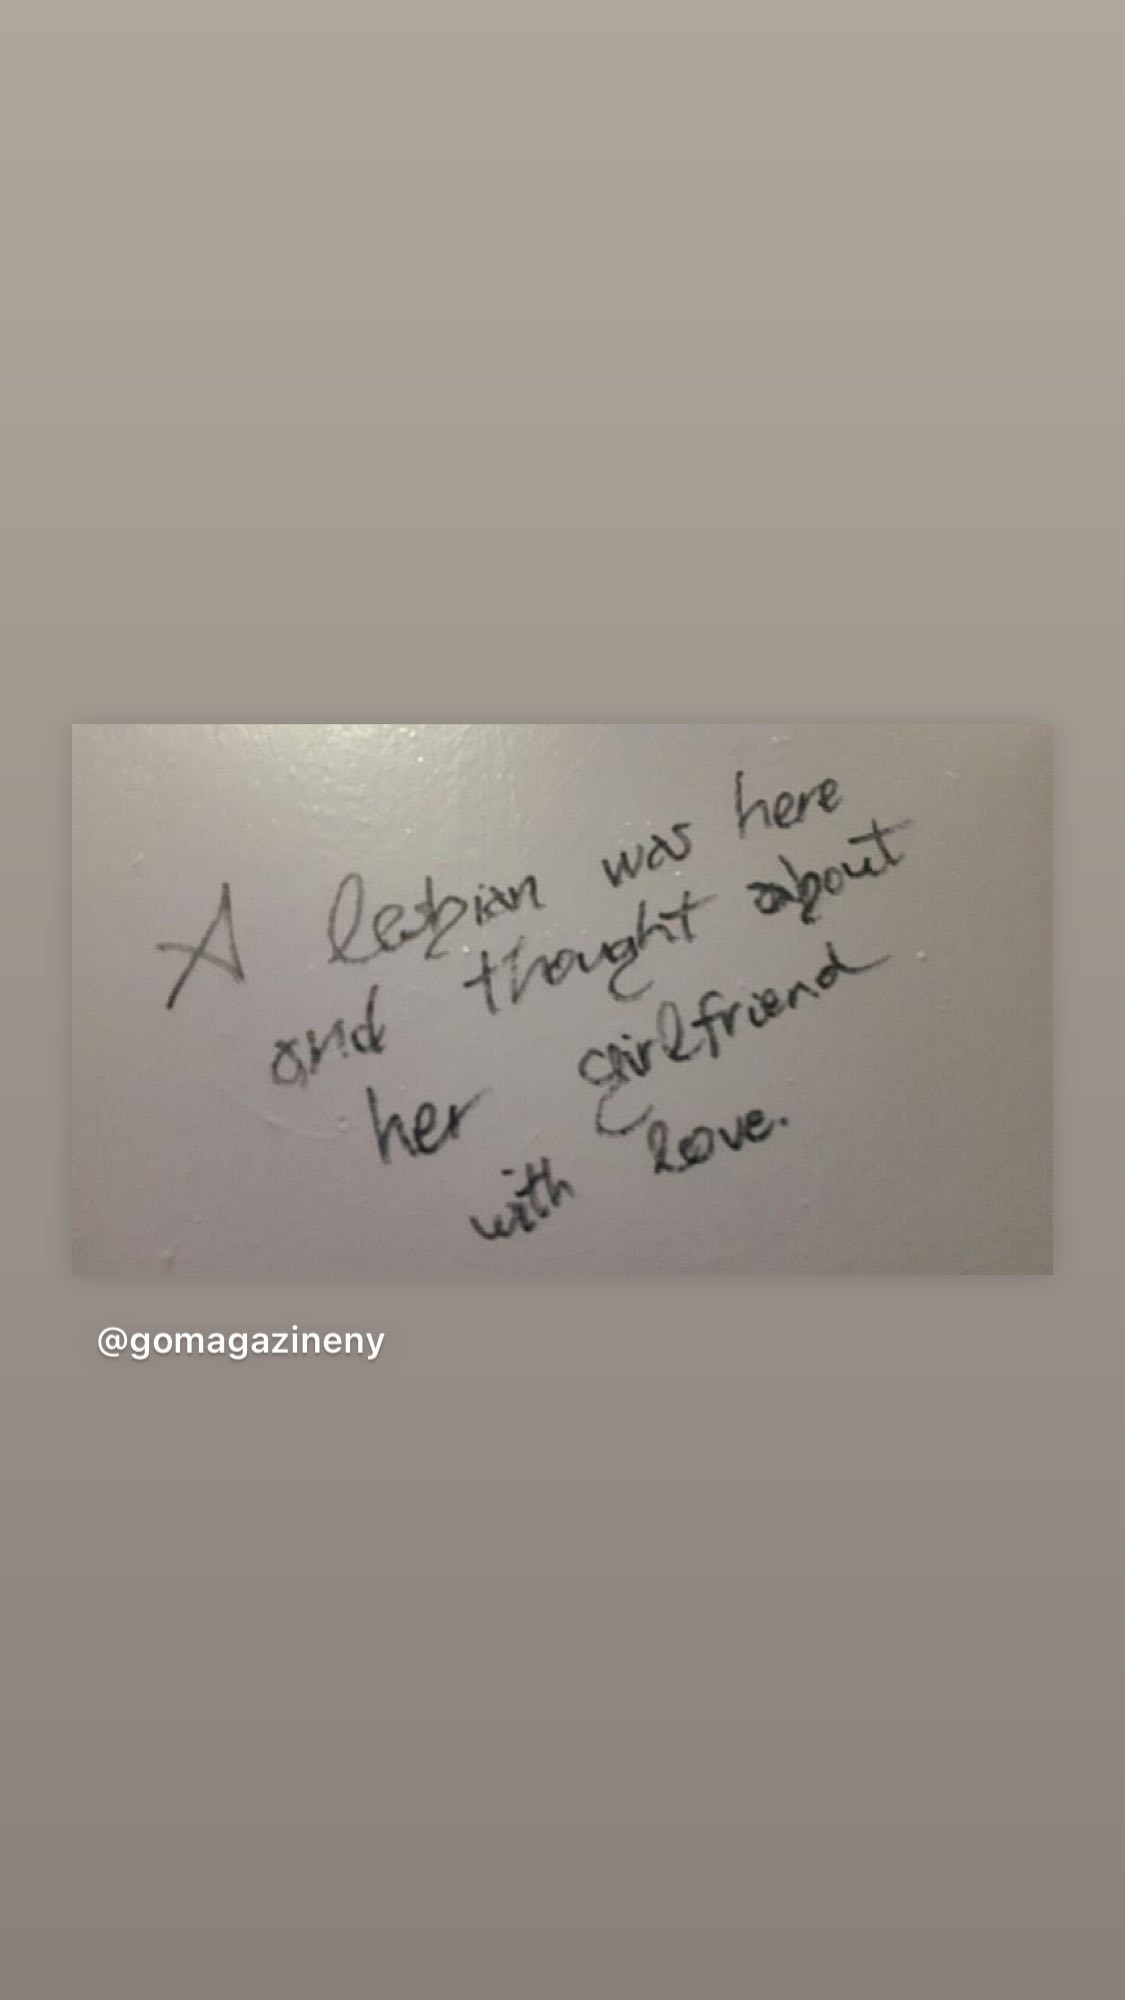 A lesbian was here
and thought about
her girlfriend
with love.
@gomagazineny